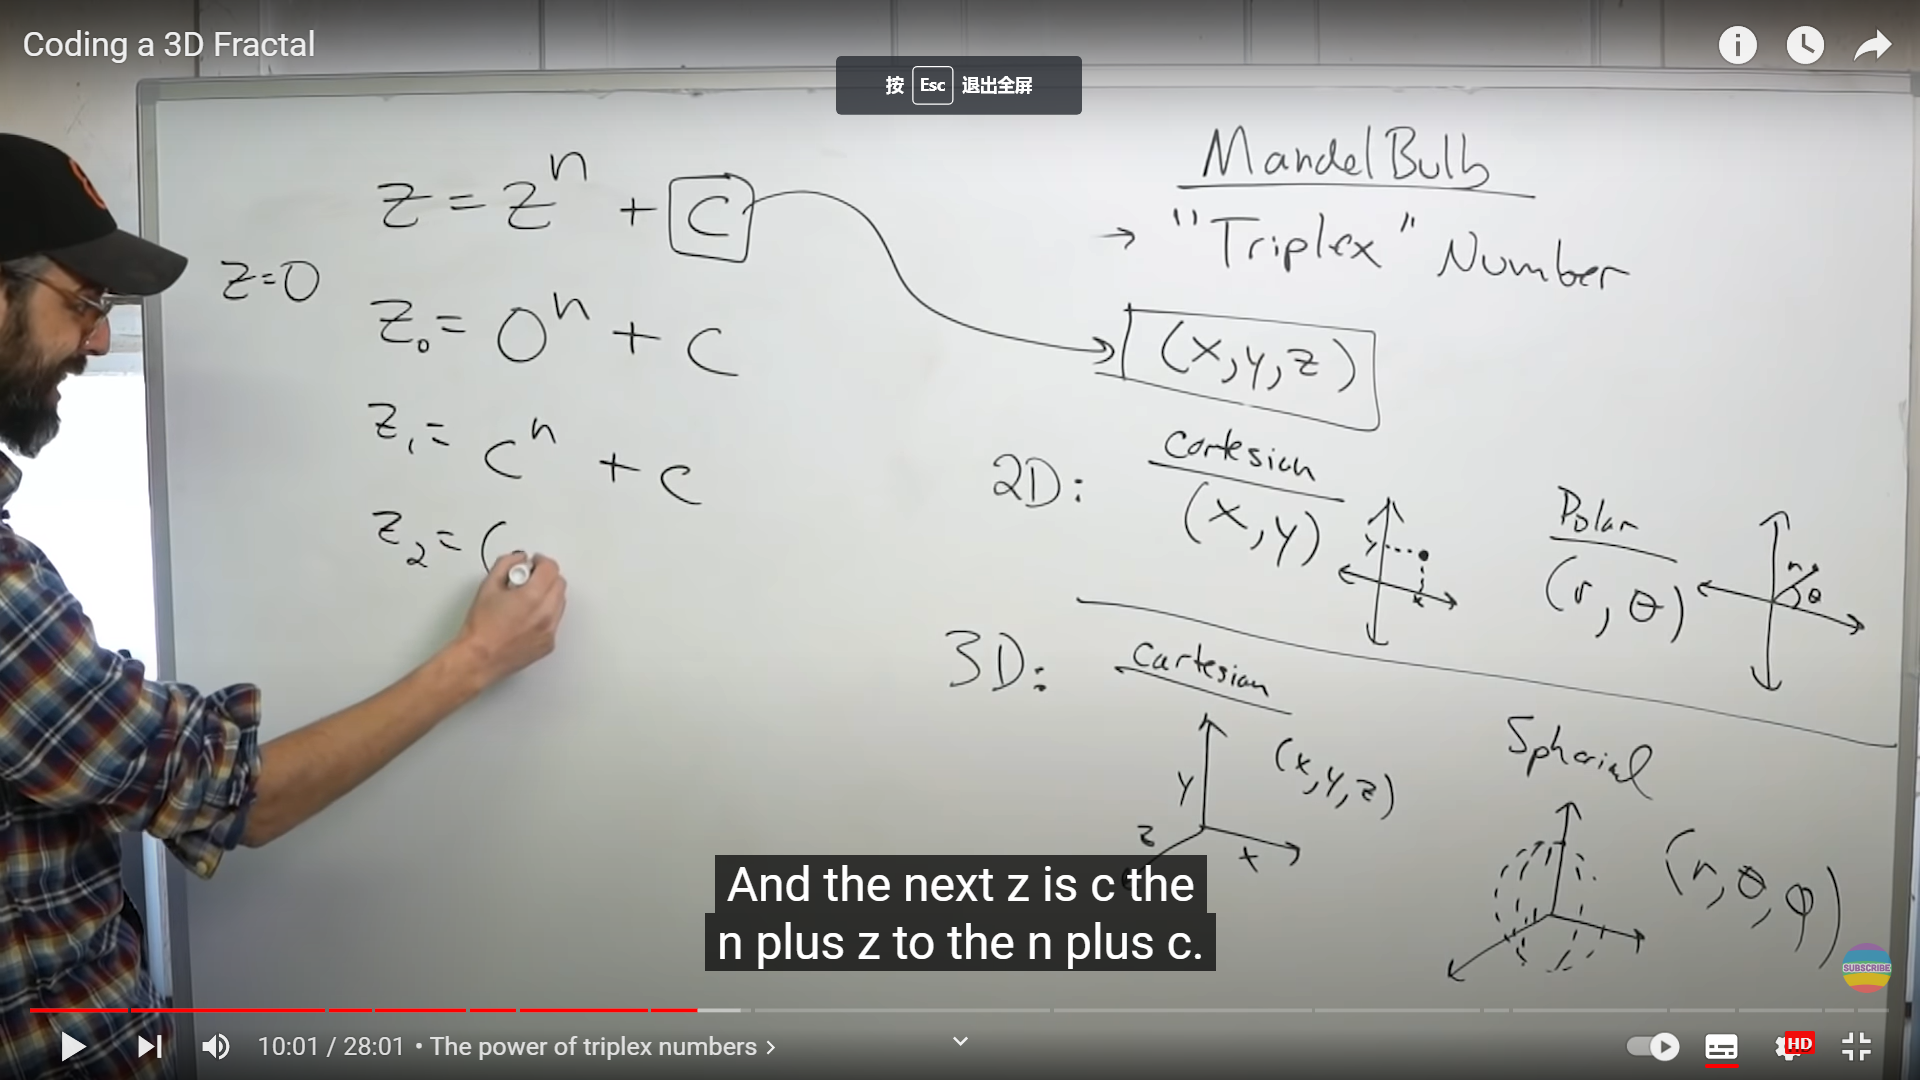 Coding a 3D Fractal
按 Esc 退出全屏
z = z^n + c
z=0
z₀ = 0^n + c
z₁ = c^n + c
z₂ = (
MandelBulb
→ "Triplex" Number
(x,y,z)
2D:
Cartesian
(x,y)
y
x
Polar
(r, θ)
r
θ
3D:
Cartesian
(x,y,z)
y
z
x
Spherical
(r, θ, φ)
And the next z is c the
n plus z to the n plus c.
SUBSCRIBE
10:01 / 28:01 • The power of triplex numbers >
HD